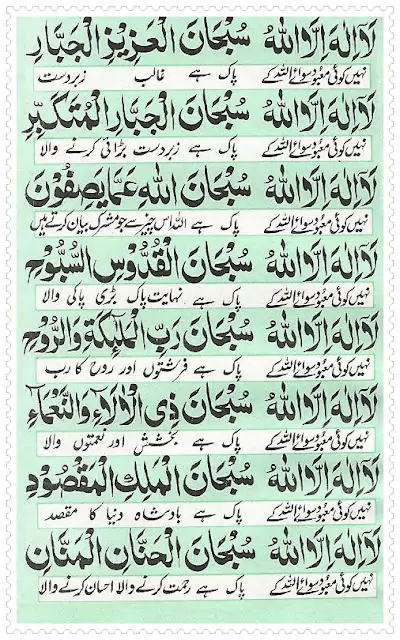 لَا اِلٰهَ اِلَّا اللهُ سُبْحَانَ الْعَزِيْزِ الْجَبَّارِ
نہیں کوئی معبود سوائے اللہ کے پاک ہے غالب زبردست
لَا اِلٰهَ اِلَّا اللهُ سُبْحَانَ الْجَبَّارِ الْمُتَكَبِّرِ
نہیں کوئی معبود سوائے اللہ کے پاک ہے زبردست بڑائی کرنے والا
لَا اِلٰهَ اِلَّا اللهُ سُبْحَانَ اللهِ عَمَّا يَصِفُوْنَ
نہیں کوئی معبود سوائے اللہ کے پاک ہے اللہ اس چیز سے جو مشرک بیان کرتے ہیں
لَا اِلٰهَ اِلَّا اللهُ سُبْحَانَ الْقُدُّوْسِ السُّبُّوْحِ
نہیں کوئی معبود سوائے اللہ کے پاک ہے نہایت پاک بڑی پاکی والا
لَا اِلٰهَ اِلَّا اللهُ سُبْحَانَ رَبِّ الْمَلٰٓئِكَةِ وَالرُّوْحِ
نہیں کوئی معبود سوائے اللہ کے پاک ہے فرشتوں اور روح کا رب
لَا اِلٰهَ اِلَّا اللهُ سُبْحَانَ ذِى الْاٰلَآءِ وَالنَّعْمَآءِ
نہیں کوئی معبود سوائے اللہ کے پاک ہے بخشش اور نعمتوں والا
لَا اِلٰهَ اِلَّا اللهُ سُبْحَانَ الْمَلِكِ الْمَقْصُوْدِ
نہیں کوئی معبود سوائے اللہ کے پاک ہے بادشاہ دنیا کا مقصد
لَا اِلٰهَ اِلَّا اللهُ سُبْحَانَ الْحَنَّانِ الْمَنَّانِ
نہیں کوئی معبود سوائے اللہ کے پاک ہے رحمت کرنے والا احسان کرنے والا